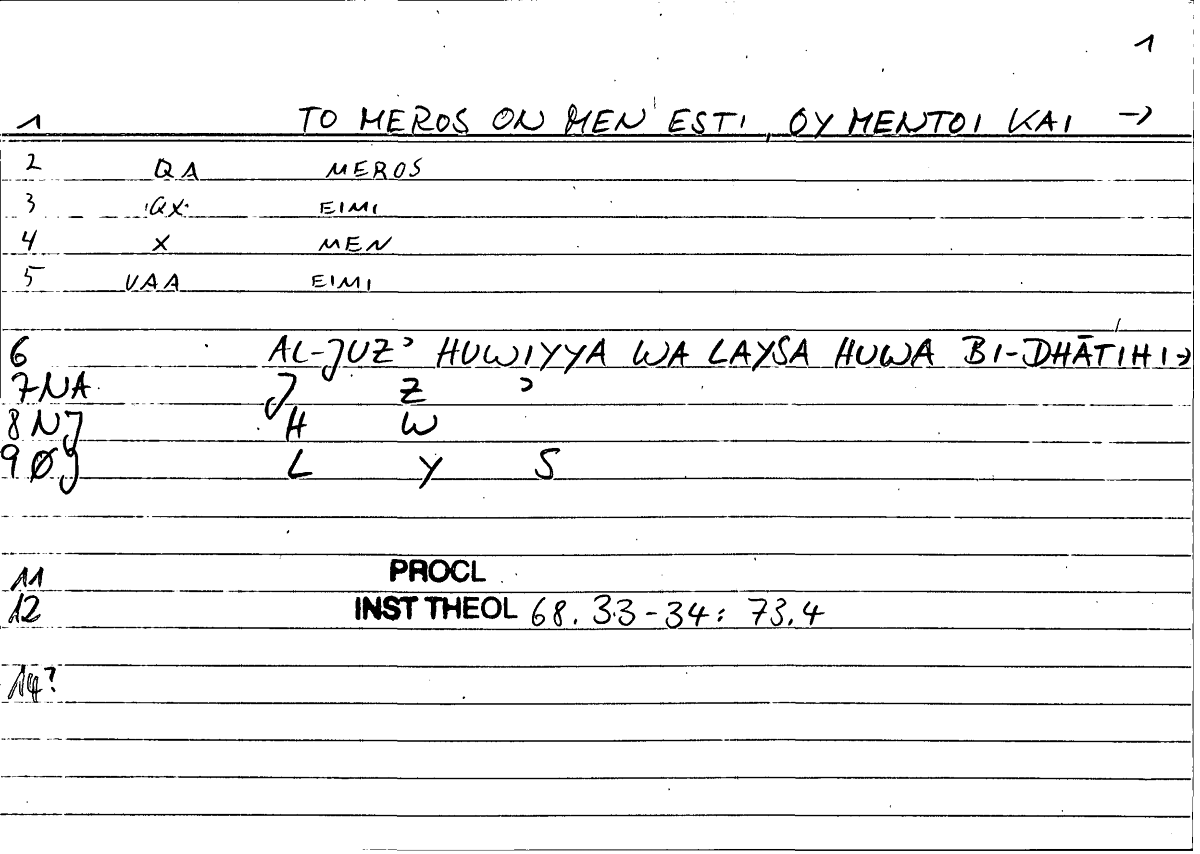 1
1 TO MEROS ON MEN ESTI, OY MENTOI KAI →
2 QA MEROS
3 QX EIMI
4 X MEN
5 VAA EIMI
6 AL-JUZʾ HUWIYYA WA LAYSA HUWA BI-DHĀTIHI→
7 NA J Z ʾ
8 NJ H W
9 ØJ L Y S
11 PROCL
12 INST THEOL 68.33-34: 73.4
14?